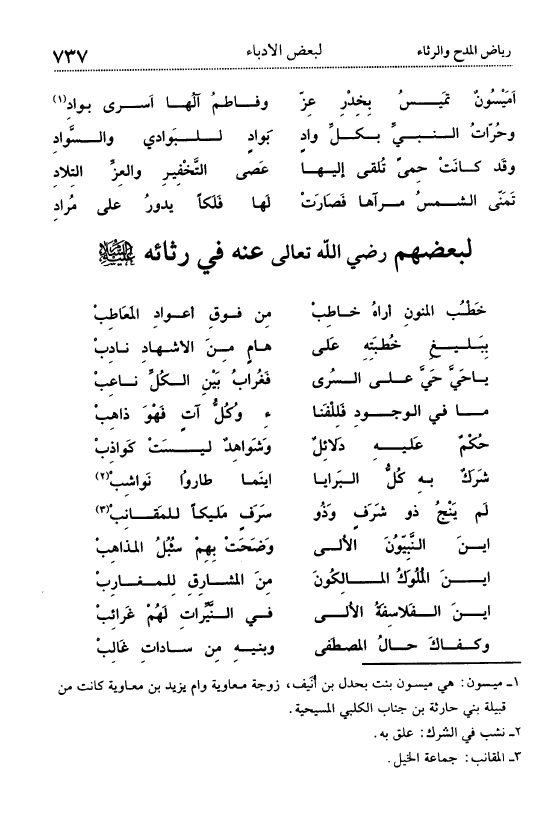 رياض المدح والرثاء لبعض الأدباء ٧٣٧
اَمَيْسُونٌ تميَــسُ بِخِدْرِ عِزّ وفـاطمُ آلُهـا اَسـرى بـوادِ(١)
وحُرّاتُ الـنبـيِّ بـكـلِّ وادٍ بَوادٍ لـلـبَوادي والـسَّوادِ
وقد كـانَتْ حِمىً تُلقى إليهـا عَصى التَّخْفيرِ والعِزِّ التِلادِ
تمَنّى الشـمسُ مـرآها فَصارَتْ لَها فَلَكاً يدورُ على مُرادِ
لبعضهم رضي اللّه تعالى عنه في رثائه عليه السلام
خَطْبُ المنونِ أراهُ خـاطِبْ مِن فـوقِ أعـوادِ المَعاطِبْ
بِبَلـيـغِ خُطْبَتِهِ عَلى هـامٍ مِـنَ الاشهادِ نادِبْ
ياحَيَّ حَيَّ علـى السُرى فَغُرابُ بَيْنِ الـكُلِّ ناعِبْ
مـا في الوجـودِ فَلِلْفَنا ءِ وكُلُّ آتٍ فَهْوَ ذاهِبْ
حُكْمٌ عليـهِ دلائِلٌ وشَواهِدٌ ليـسَتْ كَواذِبْ
شَرَكٌ بـهِ كُلُّ البَرايا اينَما طاروُا نَواشِبْ(٢)
لَم يَنْجُ ذو شَرَفٍ وَذُو سَرَفٍ مَليكاً للمَقـانِبْ(٣)
ايـنَ النَّبِيّونَ الأُلـى وَضَحَتْ بِهِمْ سُبُلُ المذاهِبْ
ايـنَ المُلُوكُ المـالِكونَ مِنَ المشارِقِ لِلمـغـاربْ
ايـنَ الفَـلاسِفةُ الأُلـى في النـيِّراتِ لَهُمْ غَرائِبْ
وكفـاكَ حـالُ المصطفى وبنيـهِ مِن سـاداتِ غالِبْ
١ـ ميسون: هي ميسون بنت بحدل بن أنَيف، زوجة معاوية وام يزيد بن معاوية كانت من
قبيلة بني حارثة بن جناب الكلبي المسيحية.
٢ـ نشب في الشرك: علق به.
٣ـ المقانب: جماعة الخيل.